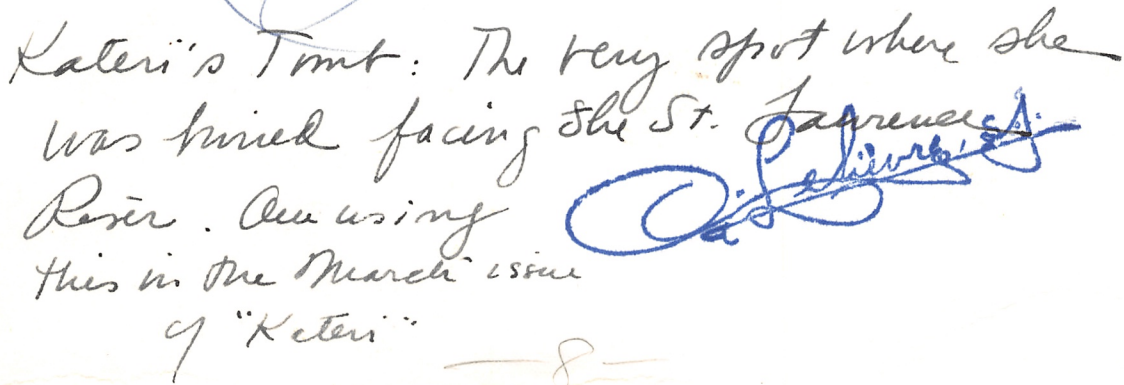 Kateri's Tomb: The very spot where she
was buried facing the St. Lawrence
River. Am using
this in the March issue
of "Kateri"